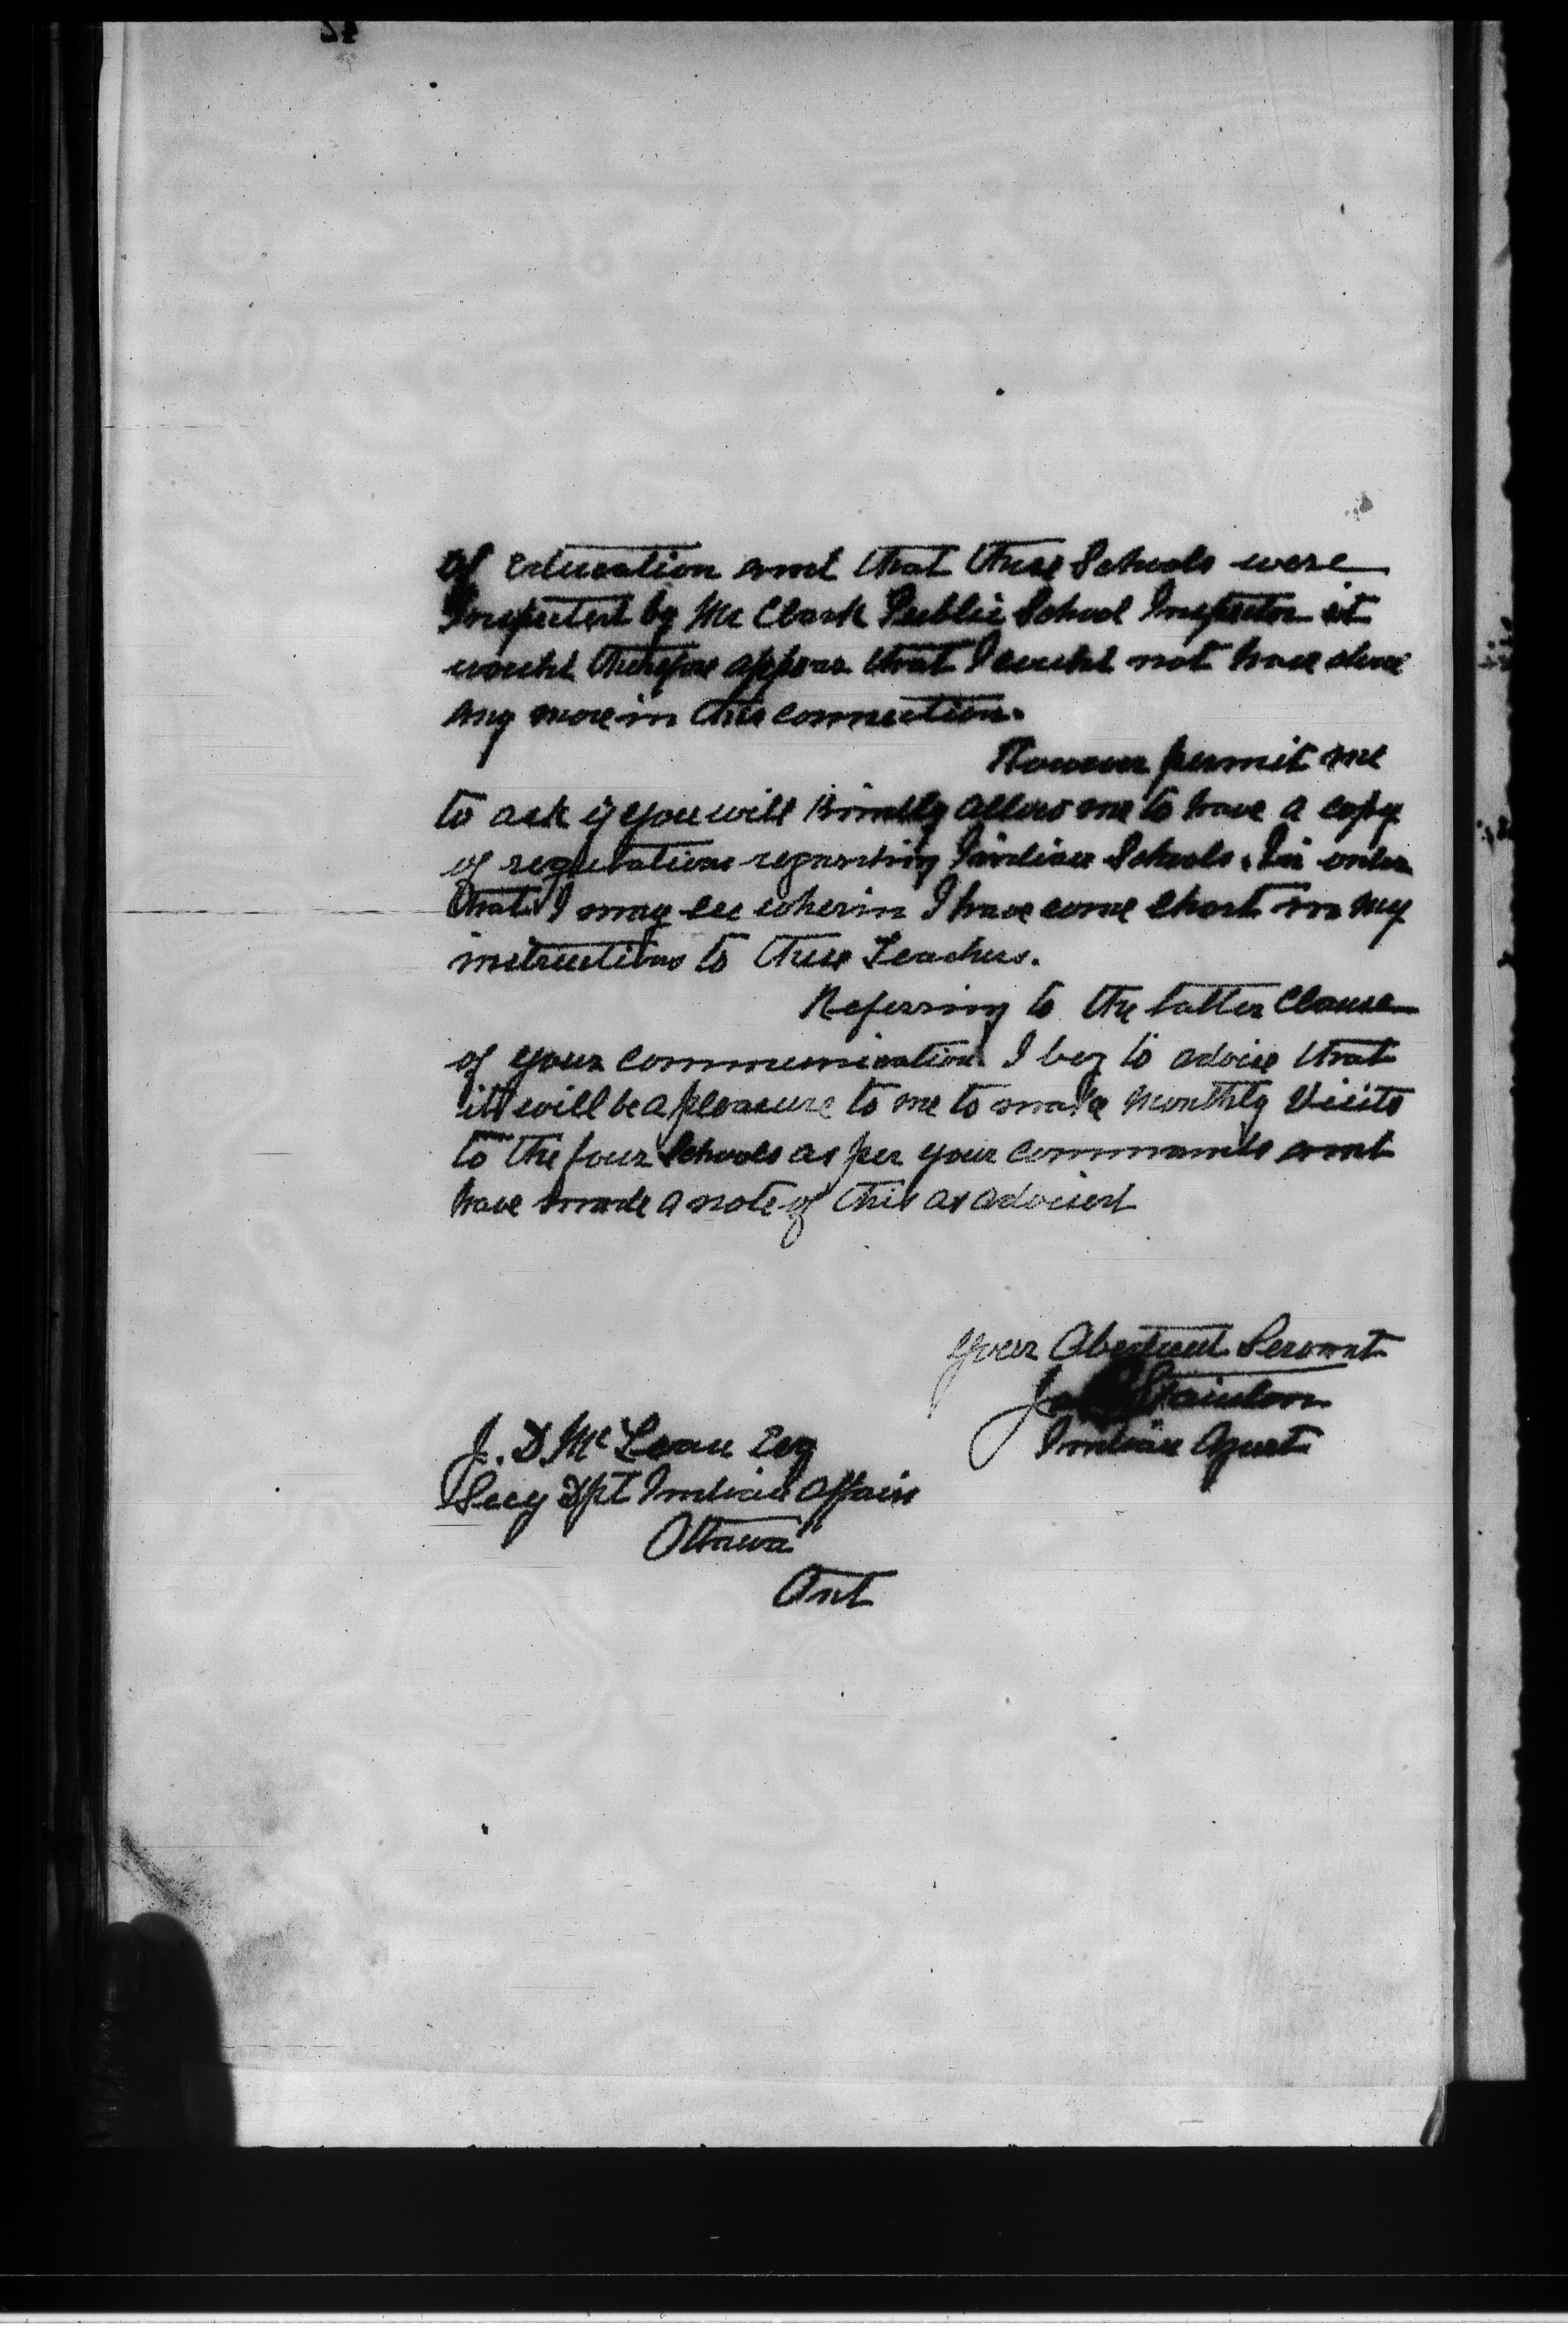 of Education and that these Schools were
Inspected by Mr Clark Public School Inspector it
would therefore appear that I could not have done
any more in this connection.
However permit me
to ask if you will Kindly allow me to have a copy
of regulations regarding Indian Schools. In order
that I may see wherin I have come short in my
instructions to these Teachers.
Referring to the latter Clause
of your communication I beg to advise that
it will be a pleasure to me to make Monthly Visits
to the four Schools as per your commands and
have made a note of this as advised
Your Obedient Servant
Stainton
Indian Agent
J. D McLean Esq
Secy Dpt Indian Affairs
Ottawa
Ont